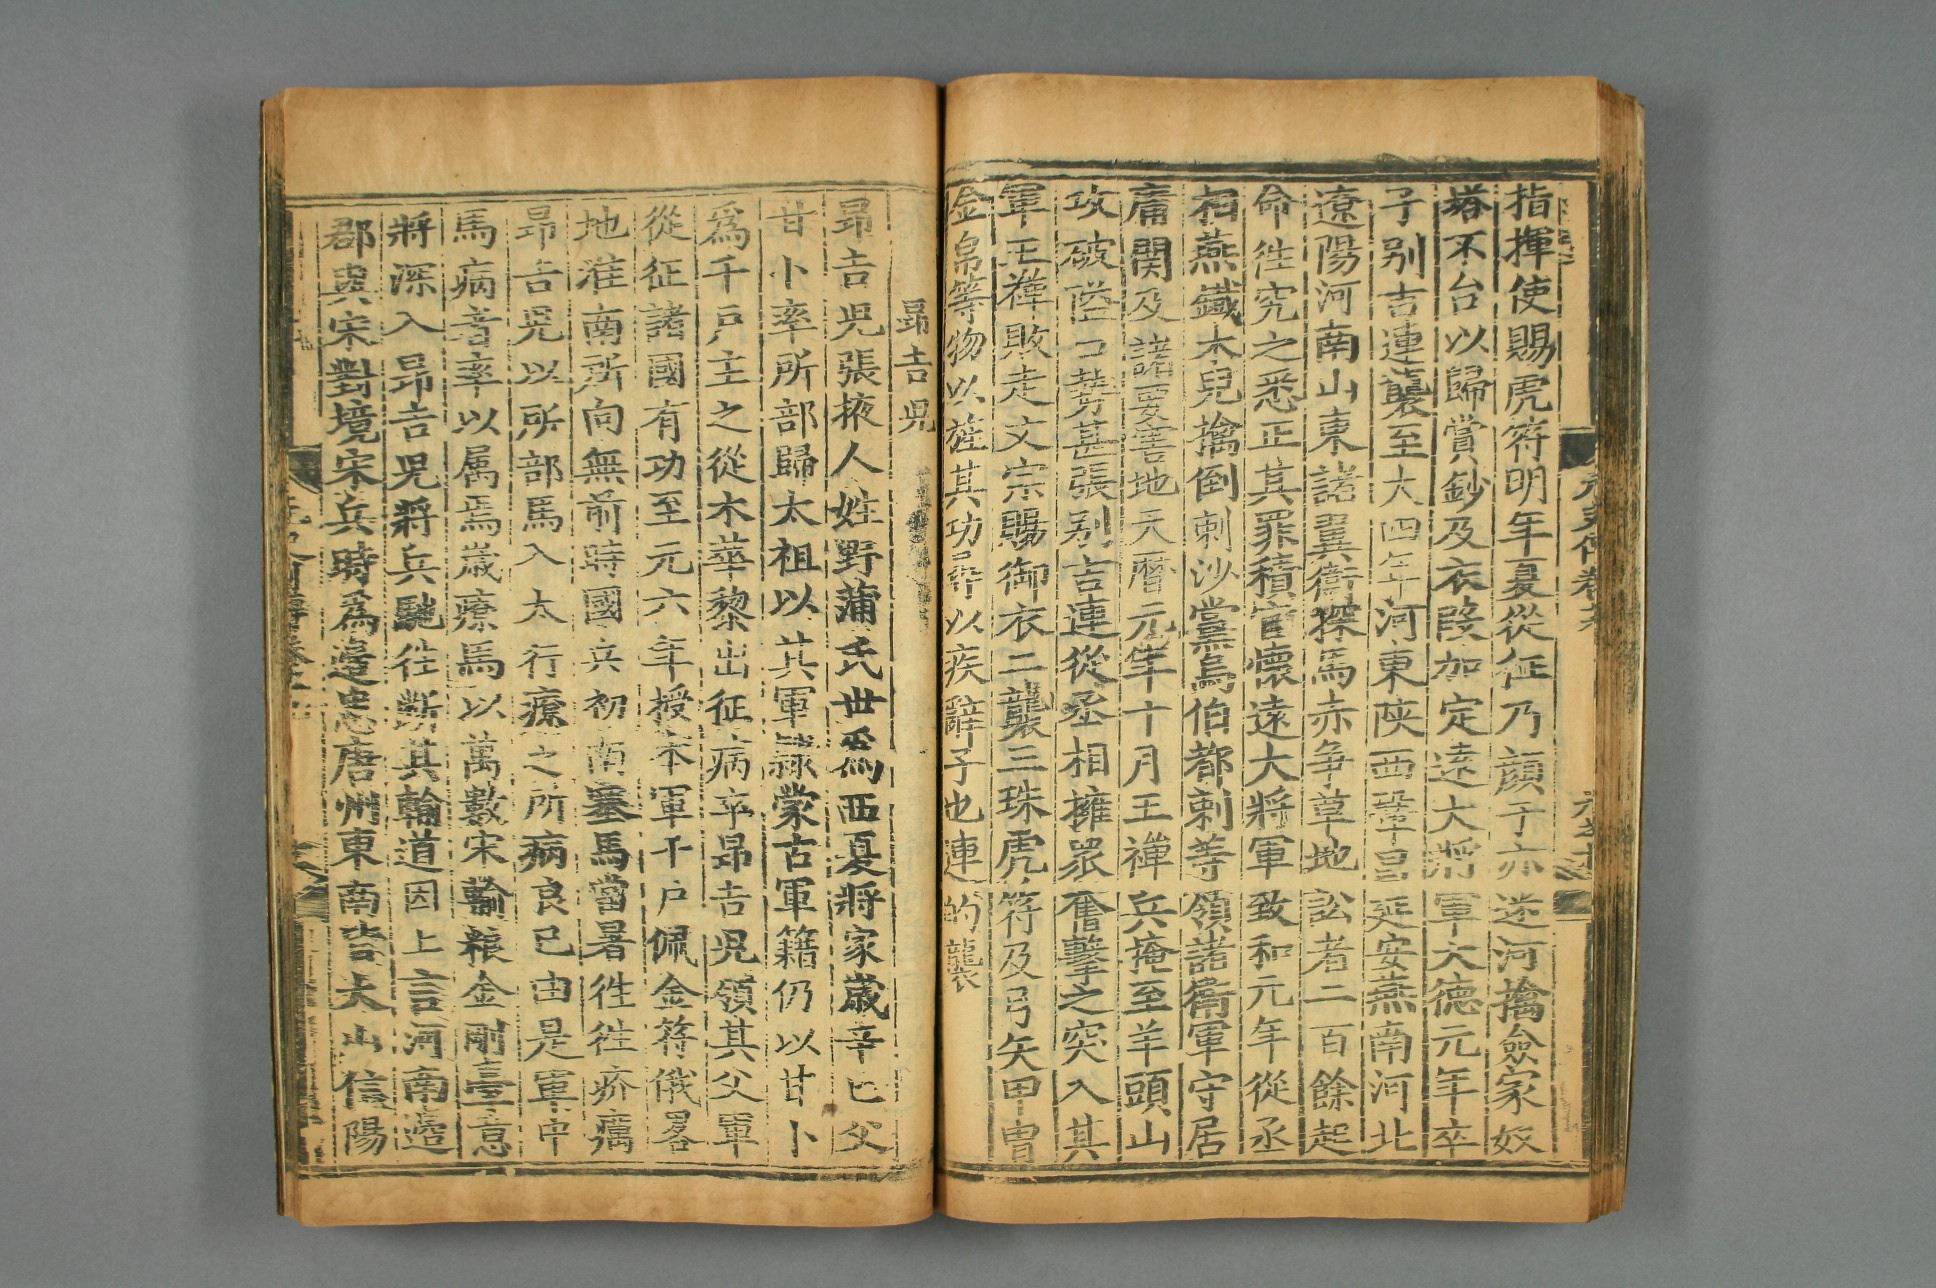 指揮使賜虎符明年夏從征乃顔于亦迷河擒僉家奴
塔不台以歸賞鈔及衣段加定遠大將軍大德元年卒
子别吉連襲至大四年河東陝西鞏昌延安燕南河北
遼陽河南山東諸翼衛探馬赤争草地訟者二百餘起
命徃究之悉正其罪積官懷遠大將軍致和元年從丞
相燕鐵木兒擒倒剌沙黨烏伯都剌等領諸衛軍守居
庸關及諸要害地天曆元年十月王禪兵掩至羊頭山
攻破隘口勢甚張别吉連從丞相擁衆奮擊之突入其
軍王禪敗走文宗賜御衣二襲三珠虎符及弓矢甲冑
金帛等物以旌其功尋以疾辭子也連的襲
昻吉兒
昻吉兒張掖人姓野蒲氏世爲西夏將家歲辛巳父
甘卜率所部歸太祖以其軍隷蒙古軍籍仍以甘卜
爲千戶主之從木華黎出征病卒昻吉兒領其父軍
從征諸國有功至元六年授本軍千戶佩金符俄畧
地淮南所向無前時國兵初南塞馬當暑徃徃疥癘
昻吉兒以所部馬入太行療之所病良已由是軍中
馬病者率以属焉歲療馬以萬數宋輸糧金剛臺意
將深入昻吉兒將兵馳徃斷其輸道因上言河南邊
郡與宋對境宋兵時爲邊患唐州東南皆大山信陽